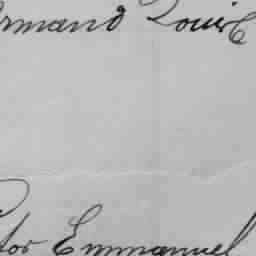 ormand Louis
tor Emmanuel